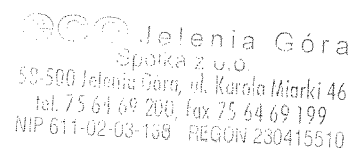 Jelenia Góra
Spółka z o.o.
58-500 Jelenia Góra, ul. Karola Miarki 46
tel. 75 64 69 200, fax 75 64 69 199
NIP 611-02-03-138 REGON 230415510